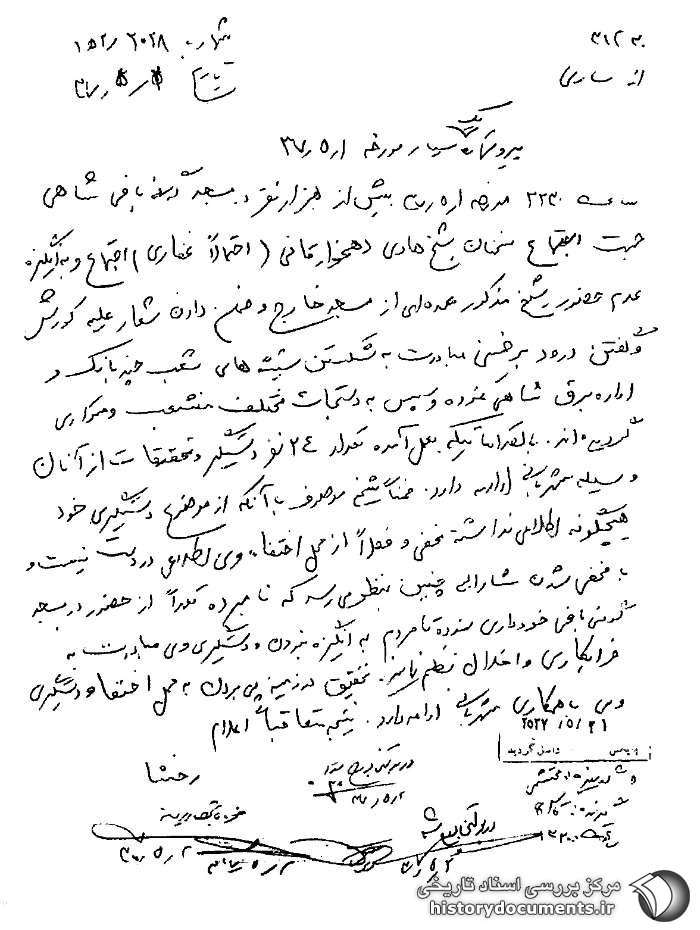 ۳۱۲۳۰
شماره: ۲۰۲۸/ ۱۵۲
از ساری
تاریخ ۳۷/۵/
پیرو سیار مورخه ۳۷/۵/۱
ساعت ۲۲۳۰ مورخه ۳۷/۵/۱ بیش از هزار نفر در مسجد گونی بافی شاهی
جهت استماع سخنان شیخ هادی دهخوارقانی (احتمالاً غفاری) اجتماع و به انگیزه
عدم حضور شیخ مذکور عده‌ای از مسجد خارج و ضمن دادن شعار علیه کورش
و گفتن درود بر خمینی مبادرت به شکستن شیشه های شعب چند بانک و
اداره برق شاهی نموده و سپس به دستجات مختلف منشعب و متواری
گردیده‌اند. با اقداماتیکه بعمل آمده تعداد ۲۴ نفر دستگیر و تحقیقات از آنان
وسیله شهربانی ادامه دارد. ضمناً شیخ موصوف با آنکه از موضوع دستگیری خود
هیچگونه اطلاعی نداشته مخفی و فعلاً از محل اختفاء وی اطلاعی در دست نیست و
با مخفی شدن مشارالیه چنین بنظر می‌رسد که نامبرده عمداً از حضور در مسجد
گونی بافی خودداری نموده تا مردم به انگیزه دستگیری وی مبادرت به
خرابکاری و اخلال نظم نمایند. تحقیق در زمینه پی بردن به محل اختفاء و دستگیری
وی با همکاری شهربانی ادامه دارد. نتیجه متعاقباً اعلام
۲۵۳۷/۵/۲۱
رخشا
۳۷/۵/۲
۳۷/۵/۲
۳۷/۵/۲
مرکز بررسی اسناد تاریخی
historydocuments.ir